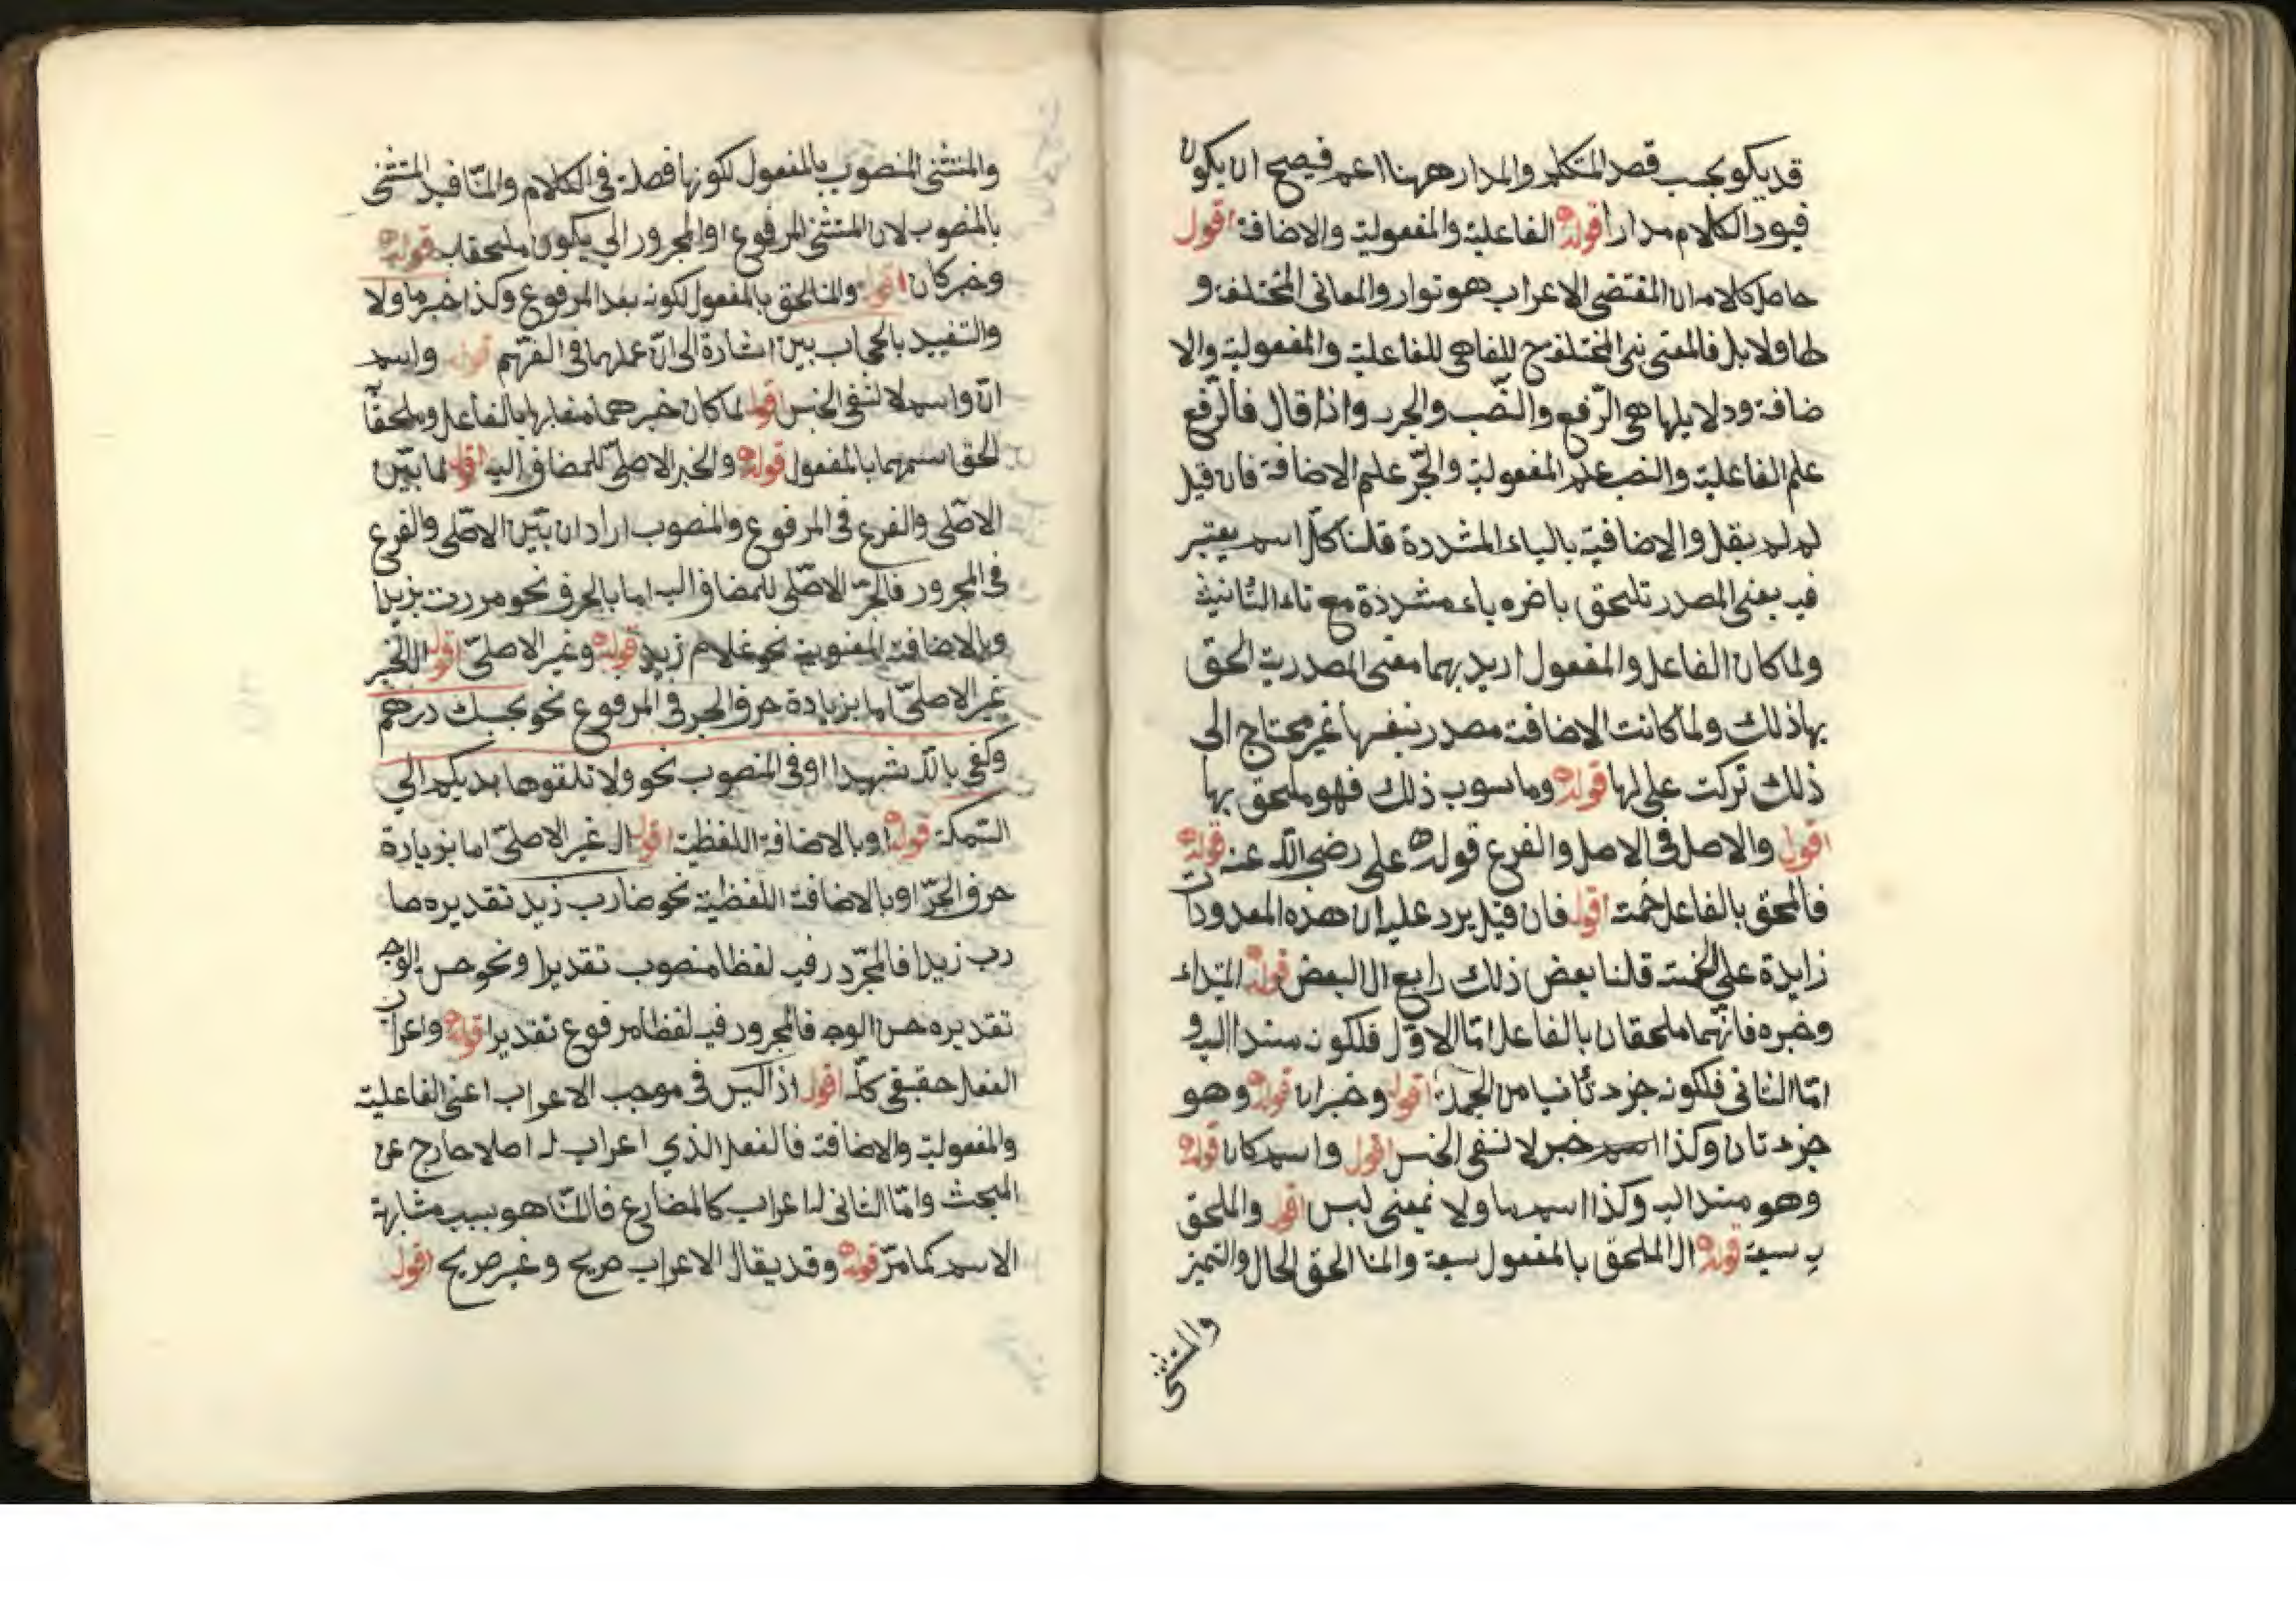 قد يكو بحسب قصد المتكلم والمدار ههنا اعم فيصح ان يكون
قيود الكلام مدارا قوله الفاعلية والمفعولية والاضافة اقول
حاصل كلامه ان المقتضى الاعراب هو توارد المعانى المختلفة و
والمفعولية والا
ضافة ودلايلها هى الرّفع والنّصب والجر واذا قال فالرّفع
علم الفاعلية والنصب علم المفعولية والجّر علم الاضافة فان قيل
لم لم يقل والاضافية بالياء المشددة قلنا كلّ اسم يعتبر
فيه بمعنى المصدر تلحق باخره ياء مشددة مع تاء التأنيث
ولما كان الفاعل والمفعول اريد بهما معنى المصدرية الحق
بها ذلك ولما كانت الاضافة مصدر بنفسها غير محتاج الى
ذلك تركت على لها قوله وما سوى ذلك فهو ملحق بها
اقول والاصل فى الاصل والفرع قوله على رضى الله عنه قوله
فالملحق بالفاعل خمسة اقول فان قيل يرد عليه ان هذه المعدودات
زايدة على الخمسة قلنا بعض ذلك رابع الى البعض قوله المبتداء
وخبره فانّهما ملحقان بالفاعل امّا الاوّل فلكونه مسندا اليه و
امّا الثانى فلكونه جزء ثانيا من الجملة اقول وخبر ان قوله وهو
جزء ثان وكذا خبر لا لنفى الجنس اقول واسم كان قوله
وهو مسند اليه وكذا اسم ما ولا بمعنى ليس اقول والملحق
به سبعة قوله الملحق بالمفعول سبعة وانما الحق الحال والتميز
والمستثنى
والمستثنى المنصوب بالمفعول لكونها فضلة فى الكلام وانّما قيد المستثنى
بالمنصوب لان المستثنى المرفوع او المجرور يكون ملحقا به قوله
وخبر كان اقول وانما لحق بالمفعول لكونه بعد المرفوع وكذا خبر ما ولا
والتقييد اشارة الى انّ عملهما فى قوله واسم
انّ واسم لا لنفى الجنس اقول لما كان خبرهما بالفاعل وملحقاً
لحق اسمهما بالمفعول قوله والجر الاصلى للمضاف اليه اقول لما بيّن
الاصّلى والفرع فى المرفوع والمنصوب اراد ان يبّين الاصّلى والفرع
فى المجرور فالجرّ الاصّلى للمضاف اليه اما بالحرف نحو مررت بزيد
وبالاضافة المعنوية نحو غلام زيد قوله وغير الاصلىّ اقول
غير الاصلىّ اما بزيادة حرف الجر فى المرفوع نحو بحسبك درهم
وكفى بالله شهيدا او فى المنصوب نحو ولا تلقوا بايديكم الى
التهلكة قوله او بالاضافة اللفظية اقول غير الاصلىّ اما بزيادة
حرف الجرّ او بالاضافة اللفظية نحو ضارب زيد تقديره ضا
رب زيدا فالمجرور فيه لفظا منصوب تقديرا ونحو حسن الوجه
تقديره حسن الوجه فالمجرور فيه لفظا مرفوع تقديرا قوله واعراب
الفعل حقيقى كلّه اقول اذ ليس فى موجب الاعراب اعنى الفاعلية
والمفعولية والاضافة فالفعل الذي اعراب له اصلا خارج عن
المبحث وامّا الثانى له اعراب كالمضارع فانّما هو بسبب مشابهة
الاسم كما مرّ قوله وقد يقال الاعراب صريح وغير صريح اقول